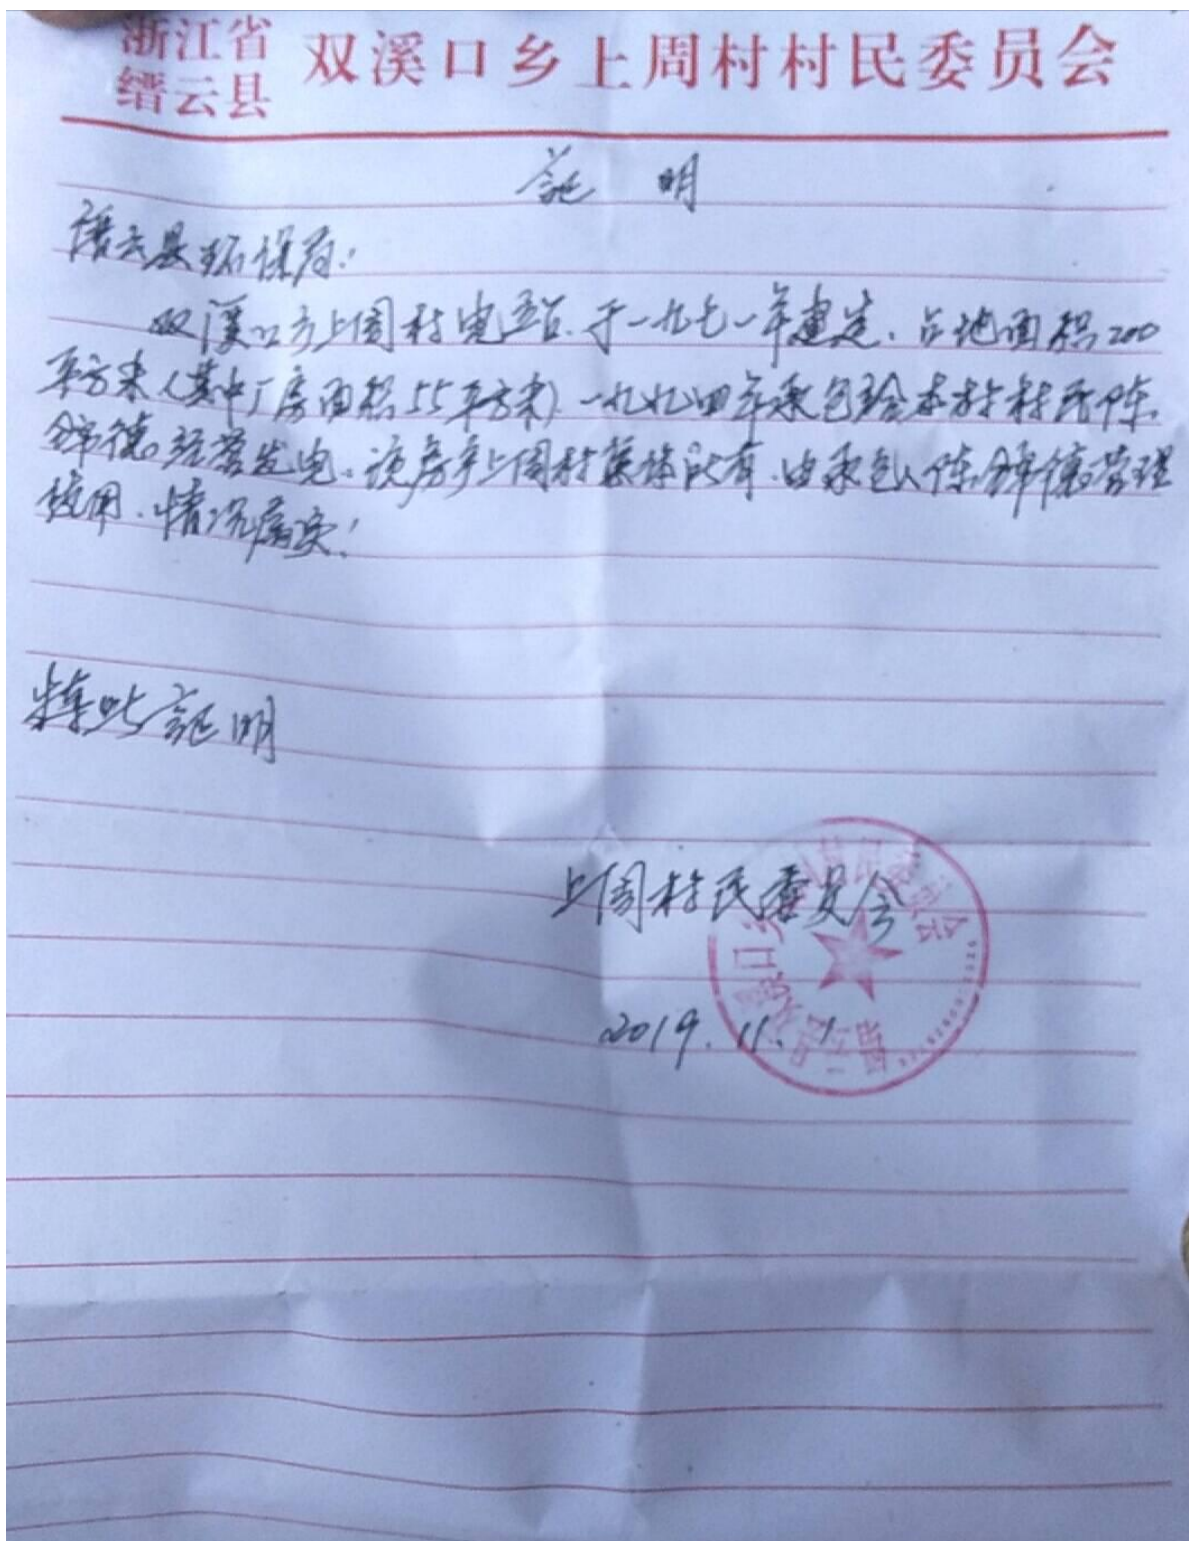 浙江省
缙云县
双溪口乡上周村村民委员会
証 明
缙云县环保局:
双溪口乡上周村电站、于一九七一年建造、占地面积200
平方米(其中厂房面积55平方米)、一九九四年承包给本村村民陈
锦德经营发电、该房产上周村集体所有、由承包人陈锦德管理
使用、情况属实!
特此証明
上周村民委员会
2019.11.1